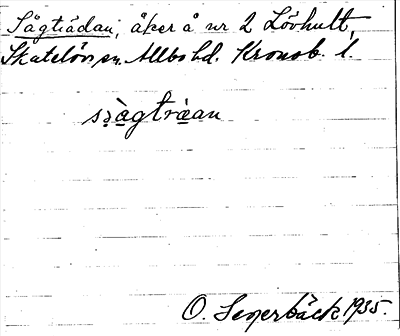 Sågträdan, åker å nr 2 Lövhult,
Skatelövs sn. Allbo hd. Kronob. l.
sạ̀gträ̀an
O. Segerbäck 1935.